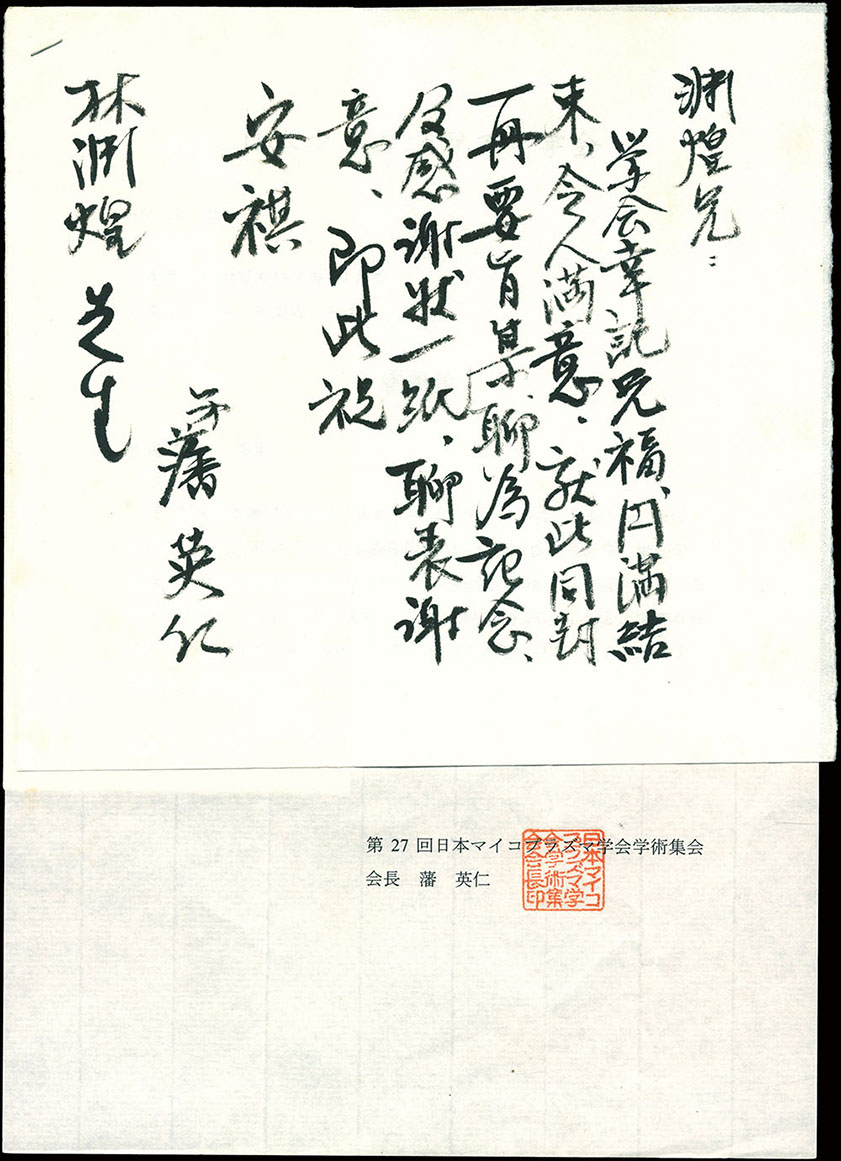 渊煌兄：
学会幸託兄福、円満結
束、令人满意、就此同封
一冊要旨集、聊為記念、
及感谢狀一紙、聊表谢
意、即此祝
安祺
弟 藩英仁
林渊煌 先生
第 27 回日本マイコプラズマ学会学術集会
会長 藩 英仁
日本マイコ
プラズマ学
会学術集
会会長印